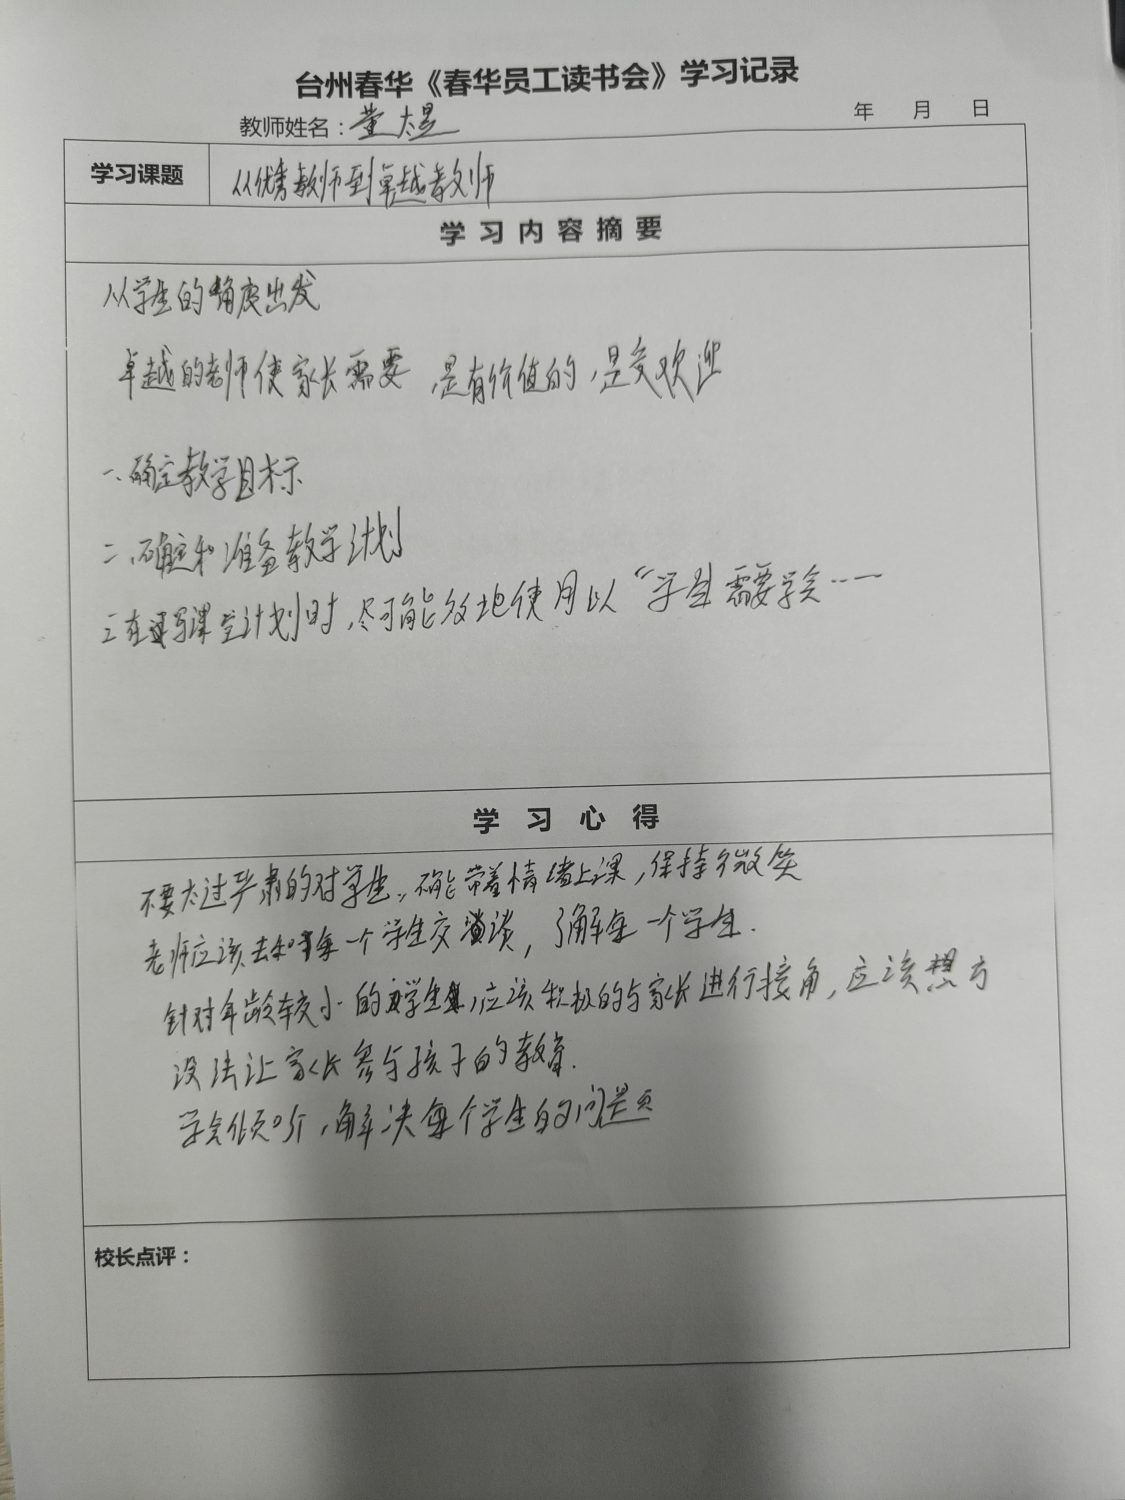 台州春华《春华员工读书会》学习记录
教师姓名：董大昱 年 月 日
学习课题 从优秀教师到卓越教师
学习内容摘要
从学生的角度出发
卓越的老师使家长需要，是有价值的，是受欢迎
一、确定教学目标
二、确定和准备教学计划
三在写课堂计划时，尽可能多地使用以“学生需要学会……
学习心得
不要太过严肃的对学生，不能带着情绪上课，保持微笑
老师应该去和每一个学生交谈，了解每一个学生.
针对年龄较小的学生，应该积极的与家长进行接角，应该想方
设法让家长参与孩子的教育.
学会倾听，解决每个学生的问题
校长点评：